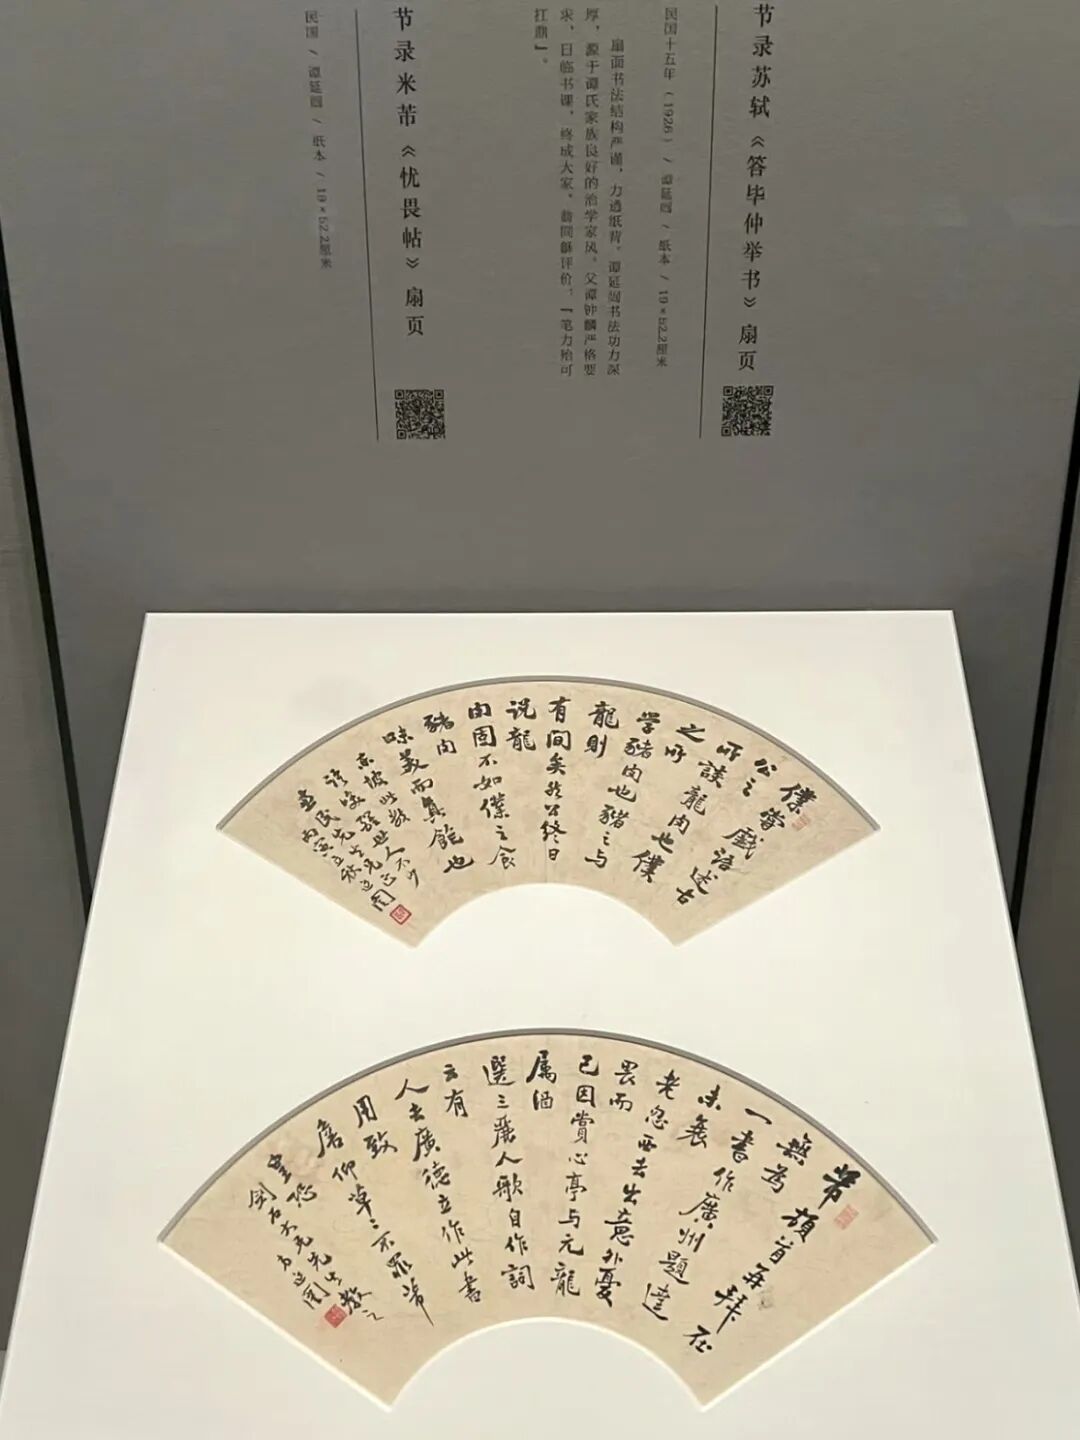 节录苏轼《答毕仲举书》扇页
民国十五年（1926）/ 谭延闿 / 纸本 / 19×52.2厘米
扇面书法结构严谨，力透纸背。谭延闿书法功力深
厚，源于谭氏家族良好的治学家风。父谭钟麟严格要
求，日临书课，终成大家。翁同龢评价：「笔力殆可
扛鼎」。
节录米芾《忧畏帖》扇页
民国 / 谭延闿 / 纸本 / 19×52.2厘米
僕嘗戲語述古
公之
所談龍肉也僕
之所
学豬肉也豬之与
龍則
有间矣然公终日
说龍
肉固不如僕之食
豬肉
味美而真飽也
东坡此数
语唤醒世人不少
壶民先生兄正
丙寅立秋延闿
芾頓首再拜在
無為
一書作廣州題達
未襄
老忽西去出意外憂
畏而
已因賞心亭与元龍
属酒
選三麗人歌自作詞
云有
人去廣德立作此書
用致
唐仰草草不罪芾
皇恐
剑石大兄先生教之
弟延闿